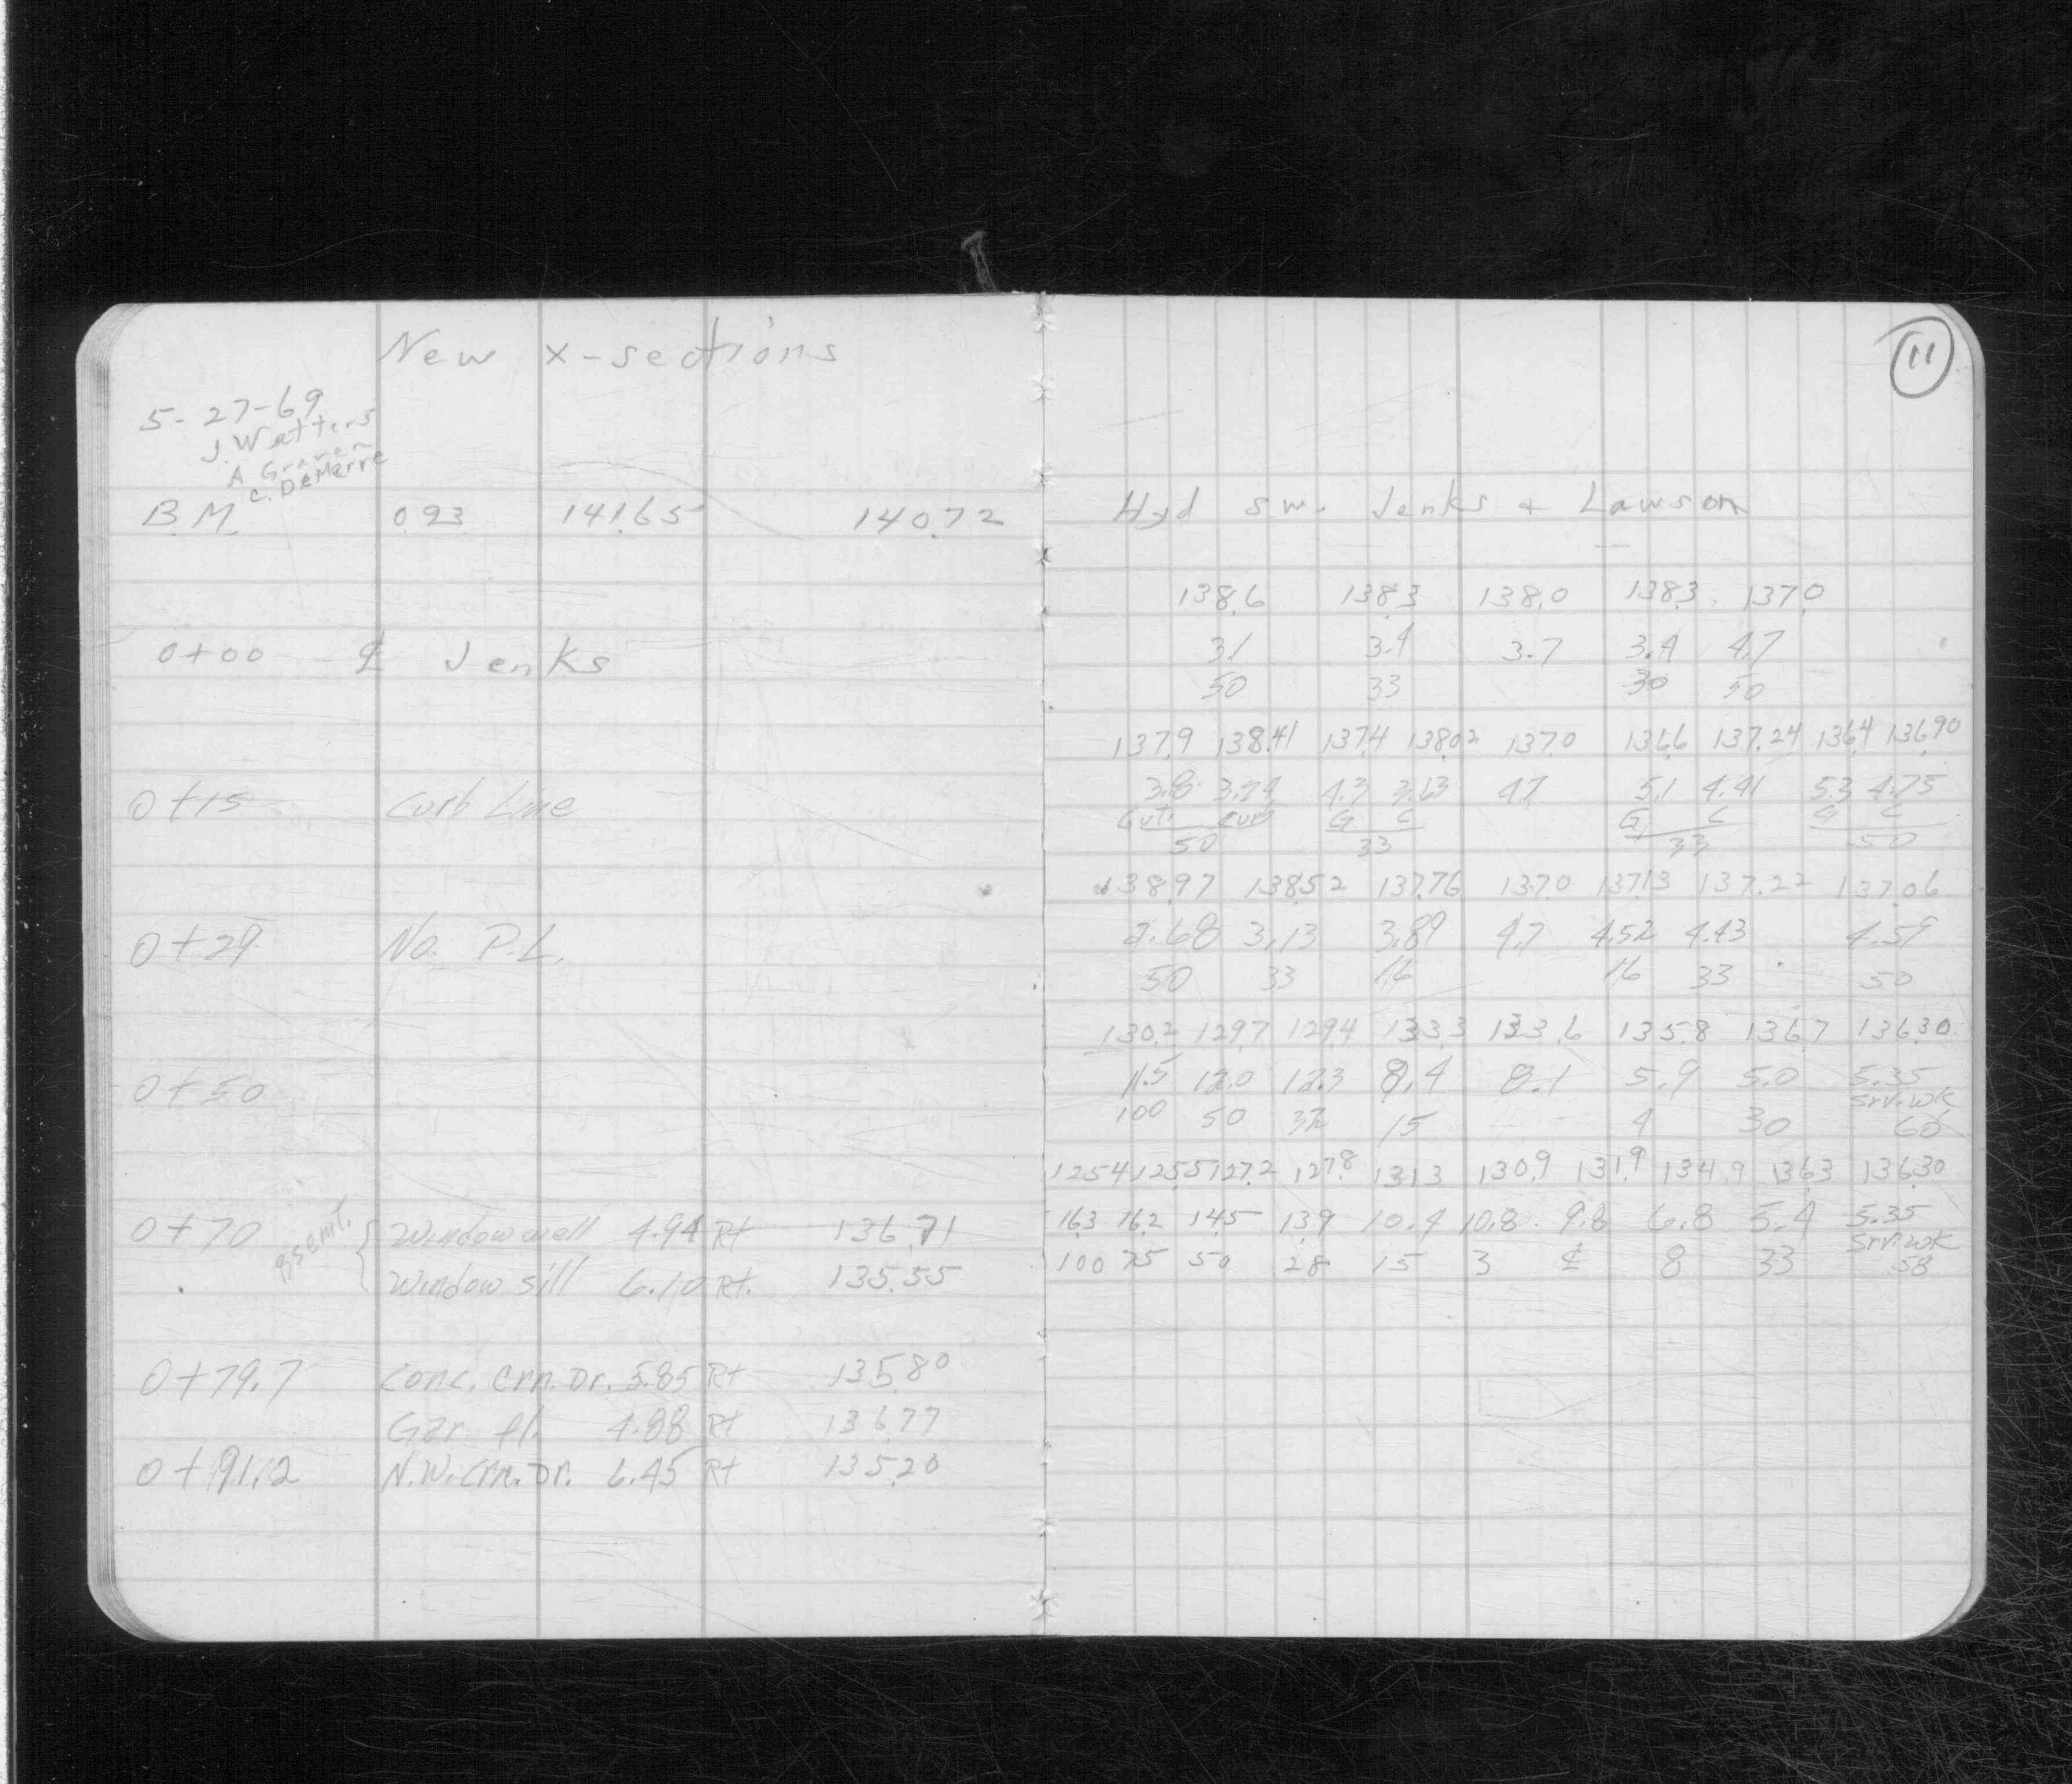 New x-sections
5-27-69
J. Watters
A Graven
C. DeMerre
B.M. 0.93 141.65 140.72
0+00 ℄ Jenks
0+15 Curb Line
0+29 No. P.L.
0+50
0+70 Bsemt. { Window well 4.94 Rt 136.71
Window sill 6.10 Rt. 135.55
0+79.7 Conc. Crn. Dr. 5.85 Rt 135.80
Gar. fl. 4.88 Rt 136.77
0+91.2 N.W. Crn. Dr. 6.45 Rt 135.20
11
Hyd s.w. Jenks + Lawson
138.6 138.3 138.0 138.3 137.0
3.1 3.4 3.7 3.4 4.7
50 33 30 50
137.9 138.41 137.4 138.02 137.0 136.6 137.24 136.4 136.90
3.8 3.24 4.3 3.63 4.7 5.1 4.41 5.3 4.75
Gut. Curb G C G C G C
50 33 33 50
138.97 138.52 137.76 137.0 137.13 137.22 137.06
2.68 3.13 3.89 4.7 4.52 4.43 4.59
50 33 16 16 33 50
130.2 129.7 129.4 133.3 133.6 135.8 136.7 136.30
11.5 12.0 12.3 8.4 8.1 5.9 5.0 5.35
Srv. Wk
100 50 32 15 4 30 60
125.4 125.5 127.2 127.8 131.3 130.9 131.9 134.9 136.3 136.30
16.3 16.2 14.5 13.9 10.4 10.8 9.8 6.8 5.4 5.35
Srv. Wk
100 75 50 28 15 3 ℄ 8 33 58